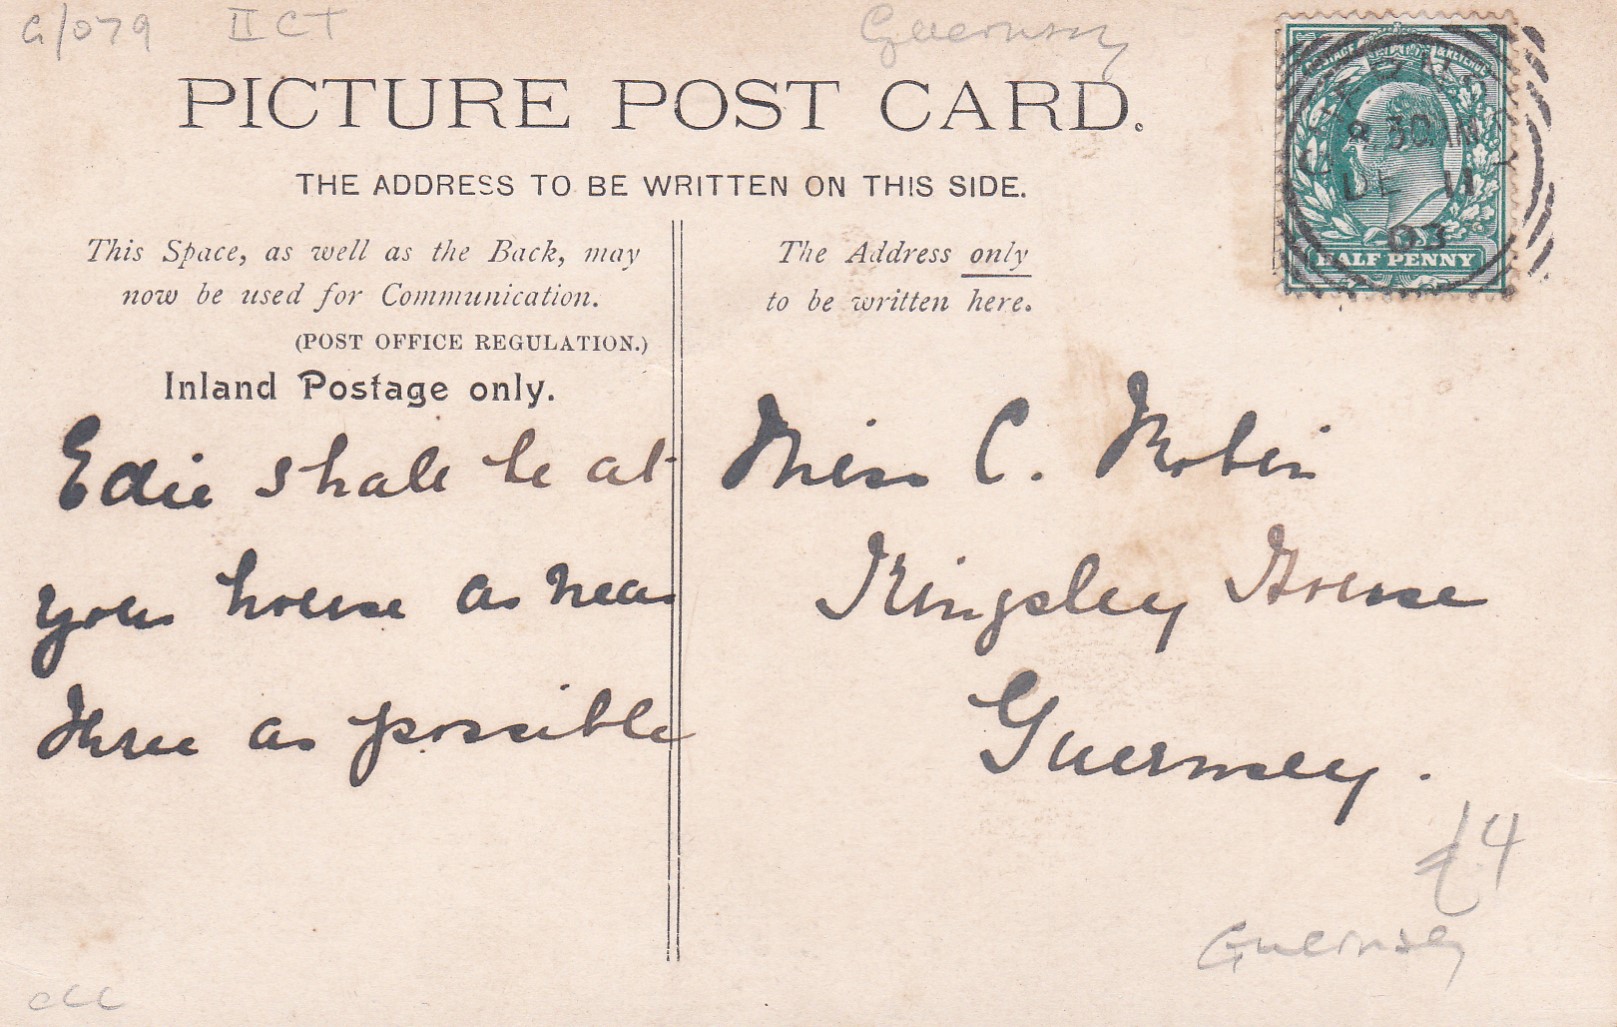 G/079 II CT Guernsey
PICTURE POST CARD.
THE ADDRESS TO BE WRITTEN ON THIS SIDE.
This Space, as well as the Back, may
now be used for Communication.
(POST OFFICE REGULATION.)
Inland Postage only.
The Address only
to be written here.
POSTAGE & REVENUE
GUERNSEY
8.30AM
DE 11
03
HALF PENNY
Edie shall be at
your house as near
three as possible
Miss C. Robin
Kingsley House
Guernsey.
£4
Guernsey